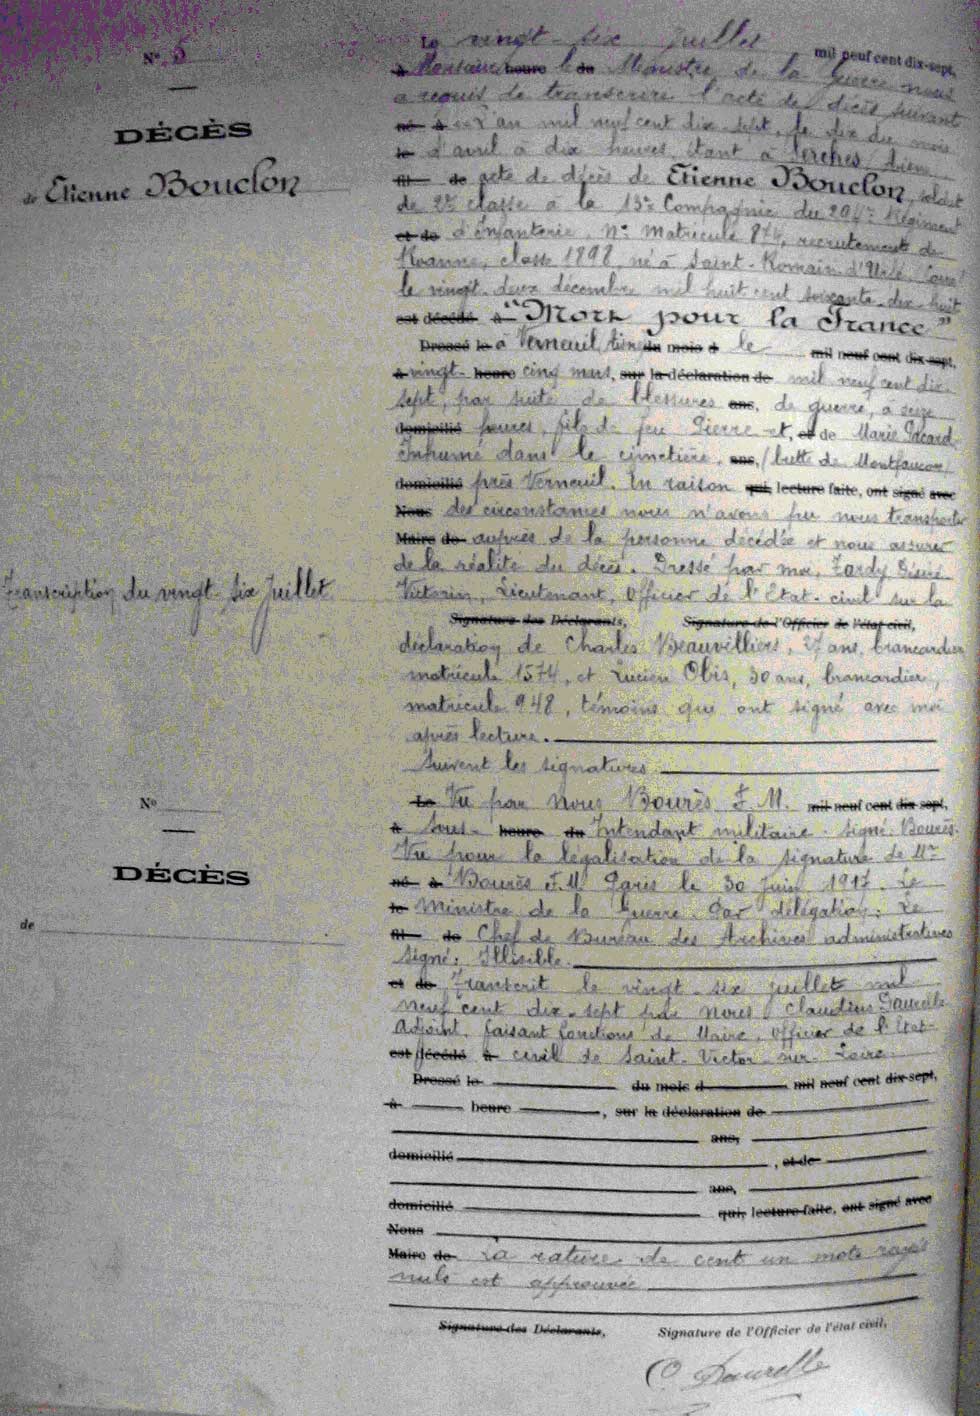 N° 5
DÉCÈS
de Etienne Bouclon
Transcription du vingt-six Juillet
Le vingt-six juillet mil neuf cent dix-sept,
à Monsieur heure le du Ministre de la Guerre nous
a requis de transcrire l'acte de décès suivant
né à L'an mil neuf cent dix-sept, le dix du mois
le d'avril à dix heures, étant à Serches (Aisne
fil de acte de décès de Etienne Bouclon, soldat
de 2e classe à la 15e Compagnie du 294e Régiment
et de d'Infanterie. N° Matricule 874, recrutement de
Roanne, classe 1898, né à Saint-Romain-d'Urfé, Loire
le vingt-deux décembre mil huit cent soixante-dix-huit
est décédé à "Mort pour la France"
Dressé le à Verneuil, du mois d le mil neuf cent dix-sept,
à vingt- heure cinq mars, sur la déclaration de mil neuf cent dix-
sept, par suite de blessures ans, de guerre, à seize
domicilié heures, fils de feu Pierre et, et de Marie Pacard
Inhumé dans le cimetière, ans, (butte de Montfaucon)
domicilié près Verneuil. En raison qui, lecture faite, ont signé avec
Nous des circonstances nous n'avons pu nous transporter
Maire de auprès de la personne décédée et nous assurer
de la réalité du décès. Dressé par moi, Tardy Désiré
Victorin, Lieutenant, Officier de l'Etat-civil sur la
Signature des Déclarants, Signature de l'Officier de l'état civil,
déclaration de Charles Beauvilliers, 27 ans, brancardier
matricule 1574, et Lucien Obis, 30 ans, brancardier,
matricule 948, témoins qui ont signé avec moi
après lecture.
Suivent les signatures
N°
DÉCÈS
de
Le Vu par nous Bourès F. M. mil neuf cent dix-sept,
à Sous- heure du Intendant militaire. signé: Bourès.
Vu pour la légalisation de la signature de Mr
né à Bourès F.M. Paris le 30 Juin 1917. Le
le Ministre de la Guerre. Par délégation: Le
fil de Chef de Bureau des Archives administratives
signé: Illisible.
et de Transcrit le vingt-six juillet mil
neuf cent dix-sept par nous Claudius Daurelle
Adjoint, faisant fonctions de Maire, officier de l'Etat-
est décédé à civil de Saint-Victor-sur-Loire.
Dressé le du mois d mil neuf cent dix-sept,
à heure , sur la déclaration de
ans,
domicilié , et de
ans,
domicilié qui, lecture faite, ont signé avec
Nous
Maire de La rature de cent un mots rayés
nuls est approuvée
Signature des Déclarants, Signature de l'Officier de l'état civil,
C. Daurelle